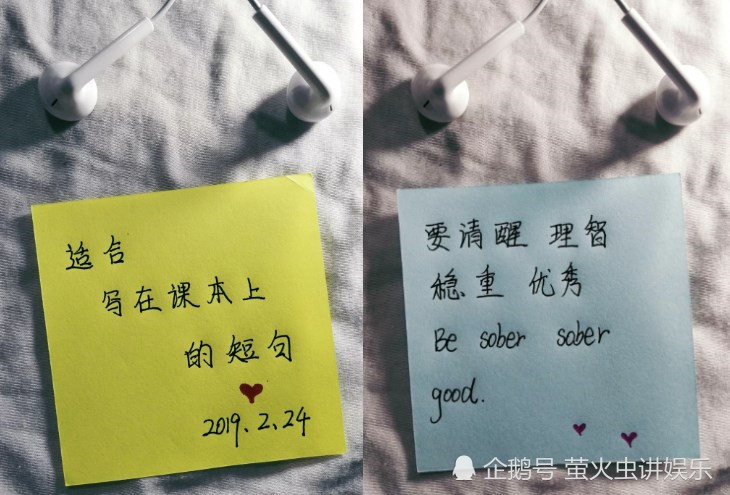 适合
写在课本上
的短句
2019.2.24
要清醒 理智
稳重 优秀
Be sober sober
good.
企鹅号 萤火虫讲娱乐